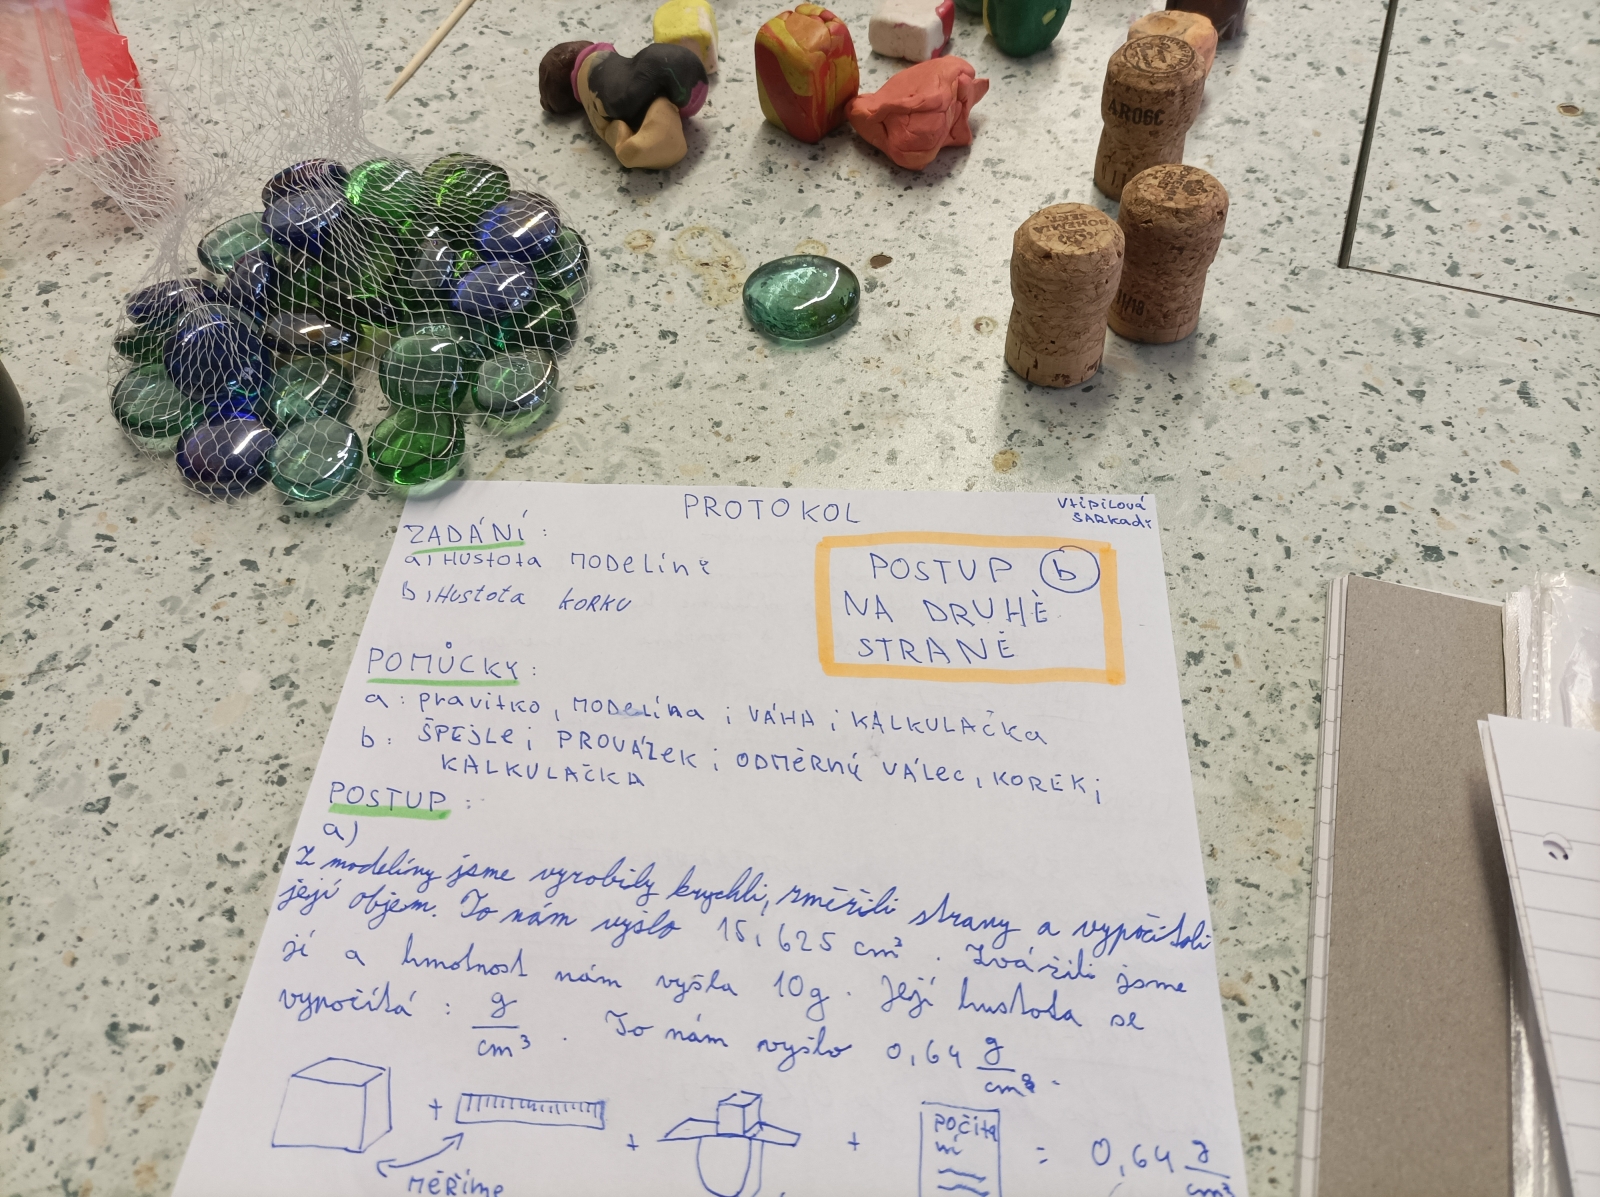 AROGC
BOHEMIA
SEKT
11/18
PROTOKOL
Vtipilová
SARKadi
ZADÁNÍ :
a) HUStota MODELÍNY
b) Hustota KORKU
POSTUP b
NA DRUHÉ
STRANĚ
POMŮCKY :
a : pravítko, MODELÍNA ; VÁHA ; KALKULAČKA
b : ŠPEJLE ; PROVÁZEK ; ODMĚRNÝ VÁLEC, KOREK ;
KALKULAČKA
POSTUP :
a)
Z modelíny jsme vyrobily krychli, změřili strany a vypočítali
její objem. To nám vyšlo 15,625 cm³. Zvážili jsme
jí a hmotnost nám vyšla 10g. Její hustota se
vypočítá : g/cm³. To nám vyšlo 0,64 g/cm³.
+ + + POČÍTÁ
MÍ
= 0,64 g/cm³
MĚŘÍME